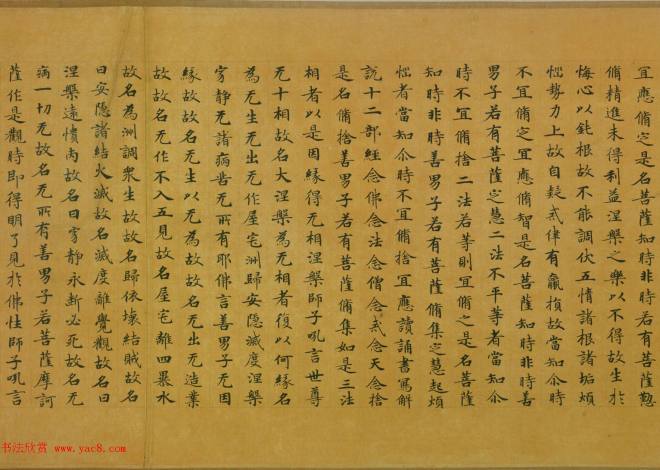 宜應脩定是名菩薩知時非時若有菩薩懃
脩精進未得利益涅槃之樂以不得故生於
悔心以鈍根故不能調伏五情諸根諸垢煩
惱勢力上故自疑戒律有羸損故當知尒時
不宜脩定宜應脩智是名菩薩知時非時善
男子若有菩薩定慧二法不平等者當知尒
時不宜脩捨二法若等則宜脩之是名菩薩
知時非時善男子若有菩薩脩集定慧起煩
惱者當知尒時不宜脩捨宜應讀誦書寫解
說十二部經念佛念法念僧念戒念天念捨
是名脩捨善男子若有菩薩脩集如是三法
相者以是因緣得无相涅槃師子吼言世尊
无十相故名大涅槃為无相者復以何緣名
為无生无出无作屋宅洲歸安隱滅度涅槃
寂静无諸病苦无所有耶佛言善男子无因
緣故故名无生以无為故故名无出无造業
故故名无作不入五見故名屋宅離四瀑水
故故名為洲調衆生故故名歸依壞結賊故名
曰安隱諸結火滅故名滅度離覺觀故名曰
涅槃遠憒丙故名曰寂静永斷必死故名无
病一切无故名无所有善男子若菩薩摩訶
薩作是觀時即得明了見於佛性師子吼言
书法欣赏
www.yac8.com